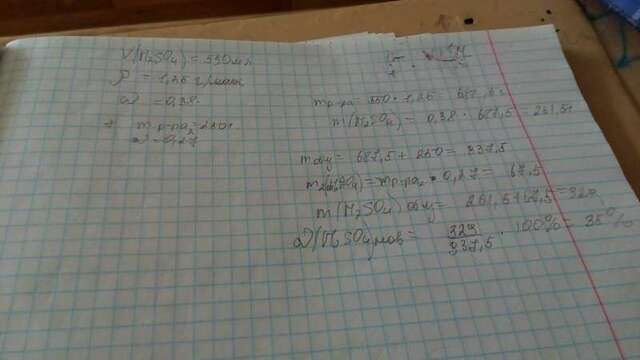 V(H₂SO₄) = 550 мл
ρ = 1,25 г/мл
ω = 0,38
m р-ра₂ = 250 г
ω = 0,27
m р-ра = 550 · 1,25 = 687,5 г
m(H₂SO₄) = 0,38 · 687,5 = 261,5 г
m общ = 687,5 + 250 = 937,5
m₂(H₂SO₄) = m р-ра₂ · 0,27 = 67,5
m(H₂SO₄) общ = 261,5 + 67,5 = 329
ω(H₂SO₄) нов = 329/937,5 · 100% = 35%